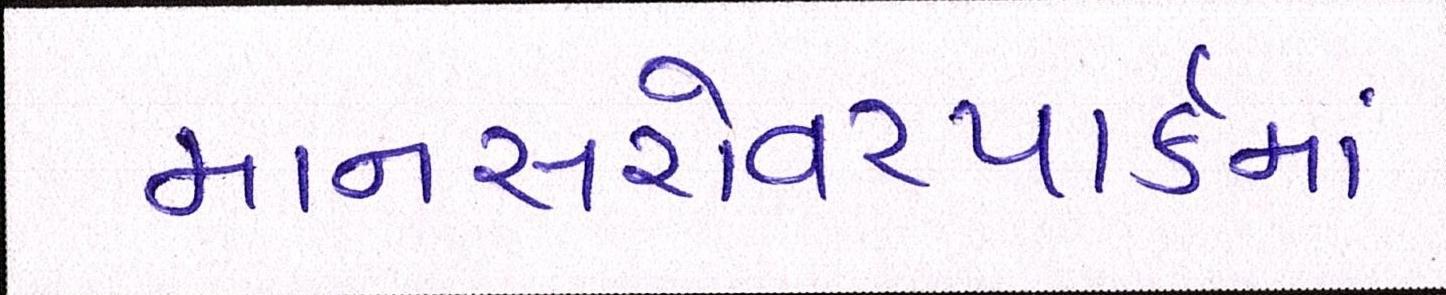 માનસરોવરપાર્કમાં